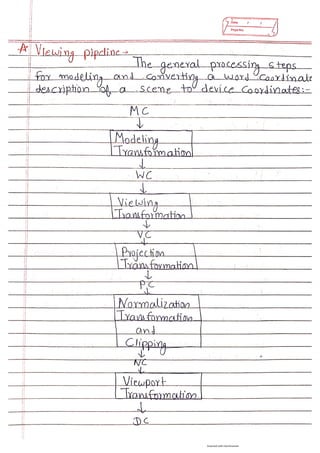 Date / /
Page No.
* Viewing pipeline →
The general processing steps
for modeling and converting a word Coordinate
description of a scene to device Coordinates:-
MC
↓
Modeling
Transformation
↓
WC
↓
Viewing
Transformation
↓
VC
↓
Projection
Transformation
↓
PC
↓
Normalization
Transformation
and
Clipping
↓
NC
↓
Viewport
Transformation
↓
DC
Scanned with CamScanner